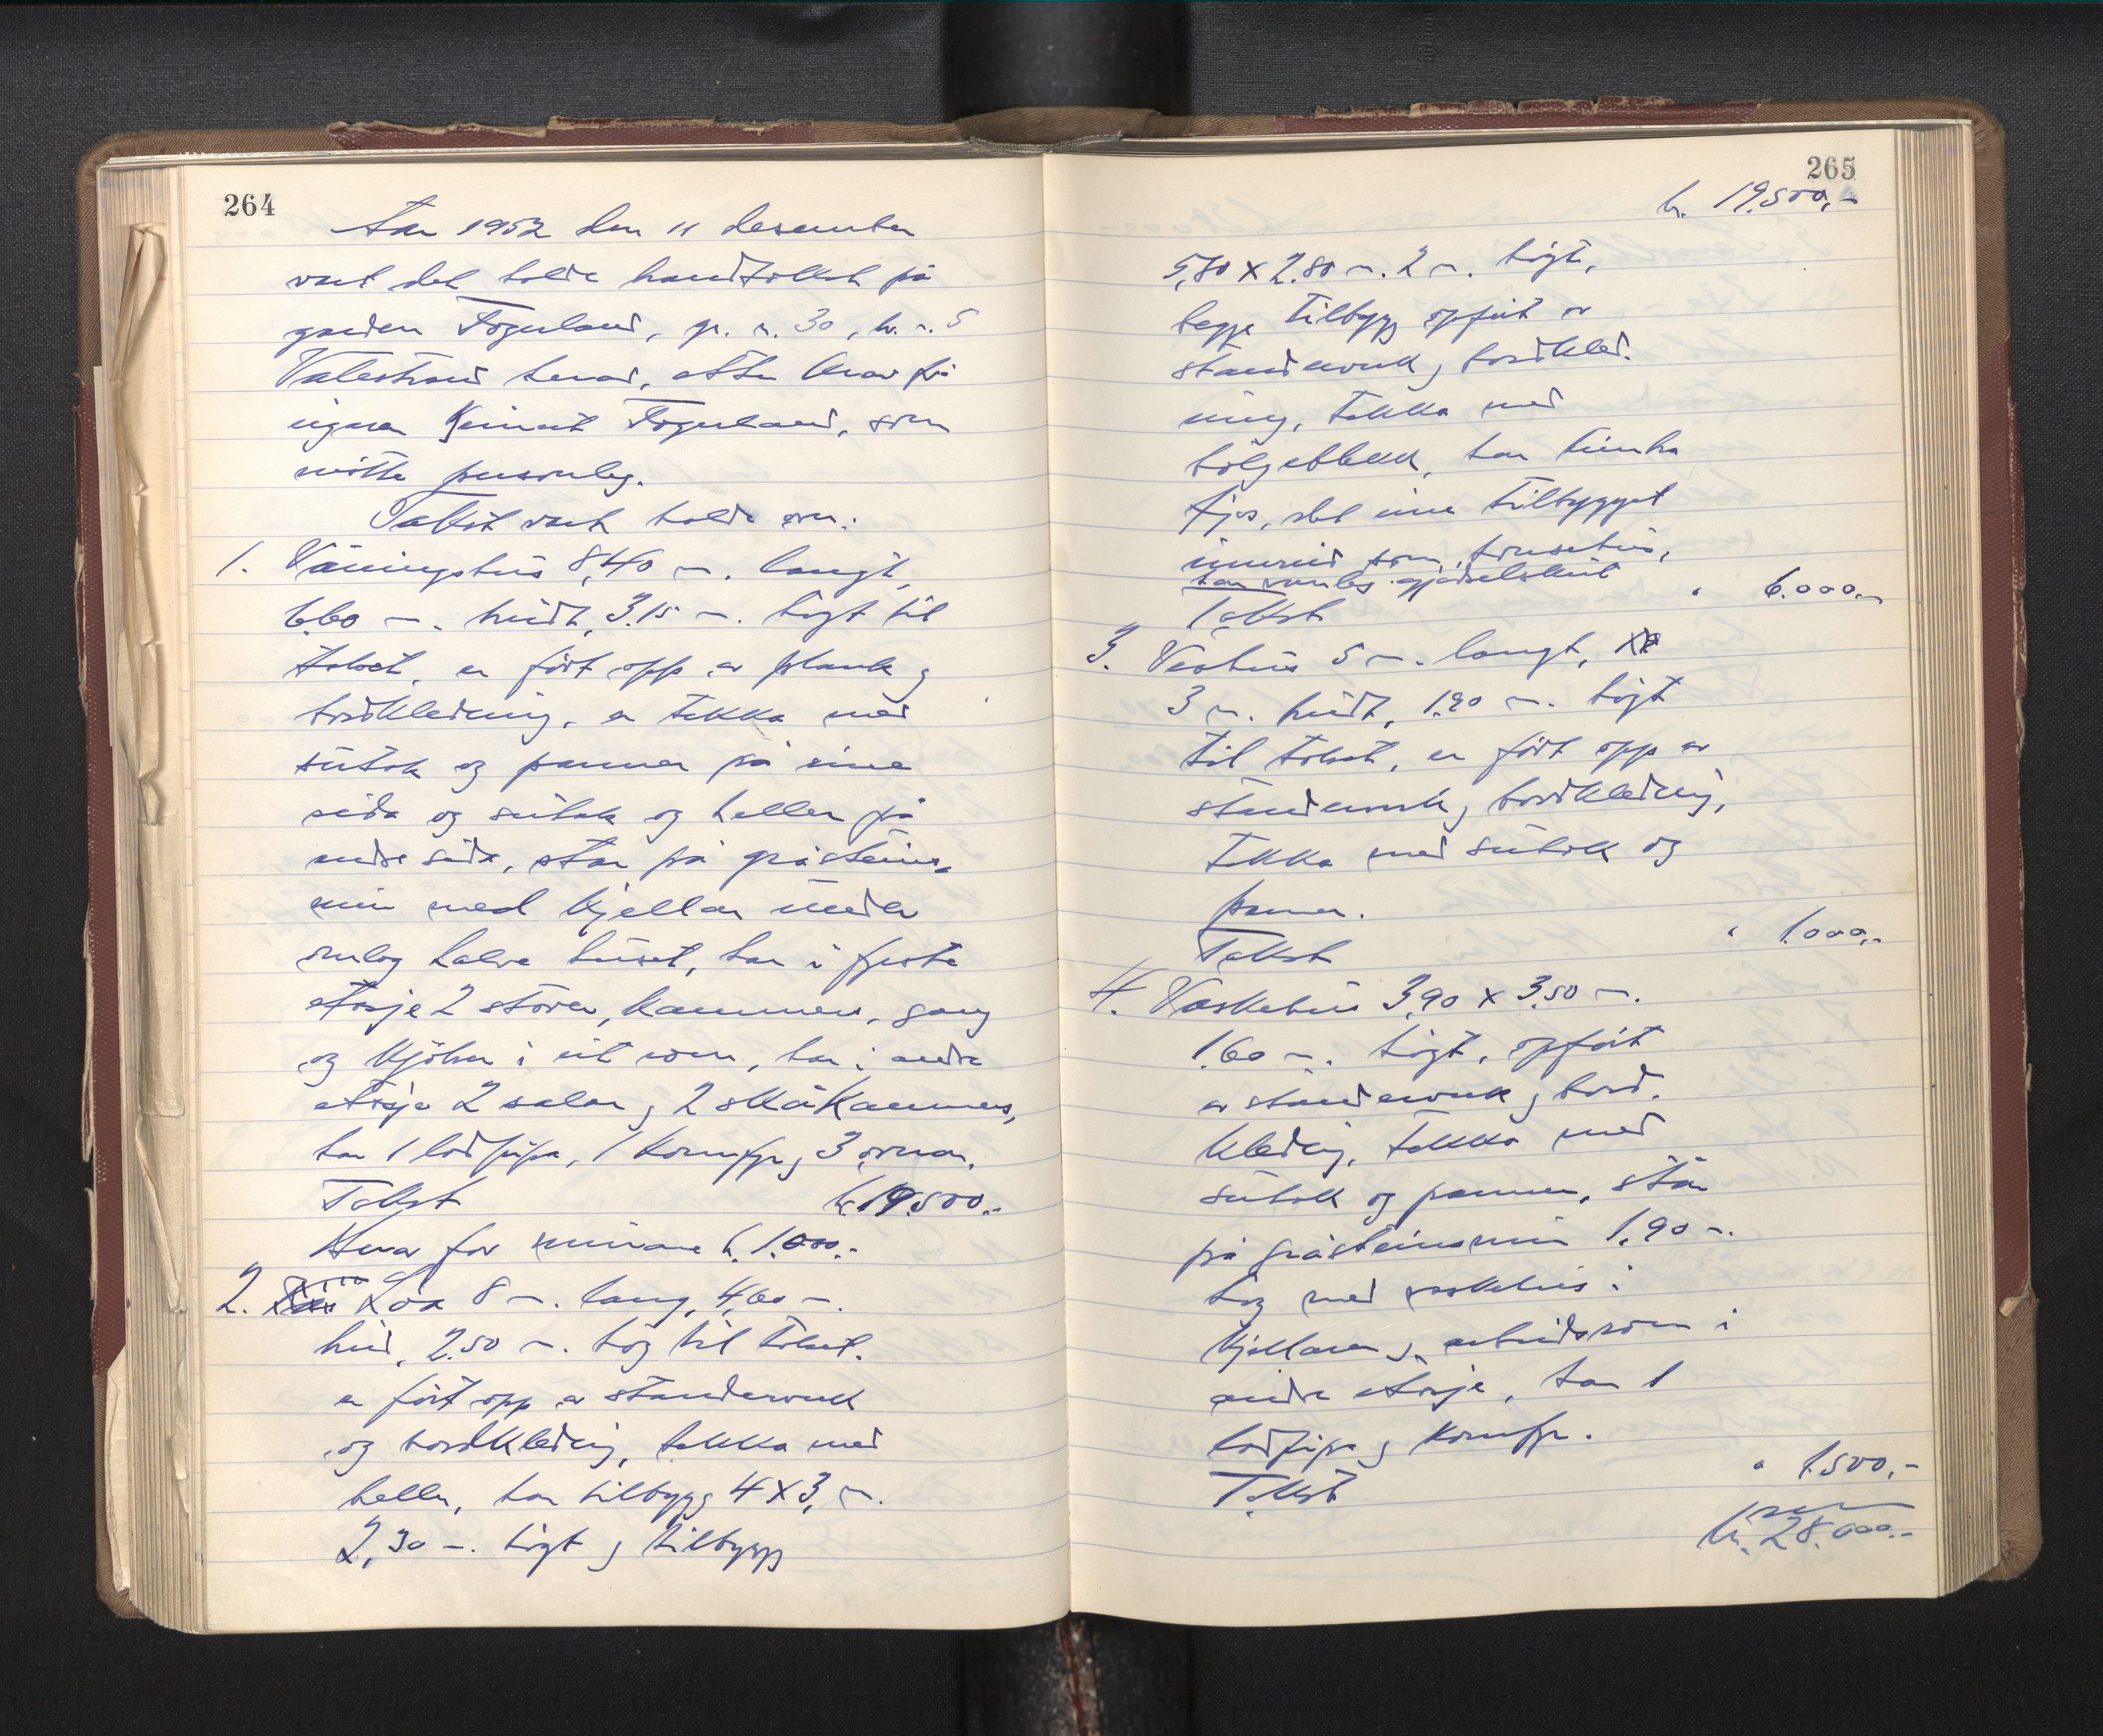 264
Aar 1952 den 11 desember
vart det halde branntakst på
garden Fogerland, gr. n. 30, br. n. 5
Valestrand herad, etter krav frå
eigaren Reinert Fogerland, som
møtte personleg.
Takst vart halde over:
1. Våningshus 8,40 m. langt,
6,60 m. breidt, 3,15 m. högt til
taket, er fört opp av plank og
bordkledning, er tekka med
sutak og panner på eine
sida og sutak og heller på
andre sida, står på gråsteins-
mur med kjellar under
umlag halve huset, har i fyrste
etasje 2 stover, kammers, gang
og kjöken i eit rom, har i andre
etasje 2 salar og 2 skåkammers,
har 1 lodpipa, 1 komfyr og 3 omnar.
Takst kr. 19.500.-
Herav for murane kr. 1.000.-
2. Löa 8 m. lang, 4,60 m.
breid, 2,50 m. hög til taket.
er fört opp av standerverk
og bordkledning, tekka med
heller, har tilbygg 4 x 3, m.
2,30 m. högt og tilbygg
265
kr. 19.500,-
5,80 x 2,80 m. 2 m. högt,
begge tilbygg opfört av
standerverk og bordkled-
ning, tekka med
bölgeblekk, har
fjos, det eine tilbygget
innreid som hönsehus,
har vanleg gjödselskut
Takst " 6.000.-
3. Vedhus 5 m. langt,
3 m. breidt, 1,90 m. högt
til taket, er fört opp av
standerverk og bordkledning,
tekka med sutak og
panner.
Takst " 1.000,-
4. Vaskehus 3,90 x 3,50 m.
1,60 m. högt, opfört
av standerverk og bord-
kledning, tekka med
sutak og panner, står
på gråsteinsmur 1,90 m.
hög med vaskehus i
kjellaren og arbeidsrom i
andre etasje, har 1
lodpipe og komfyr.
Takst " 1.500,-
kr. 28.000.-